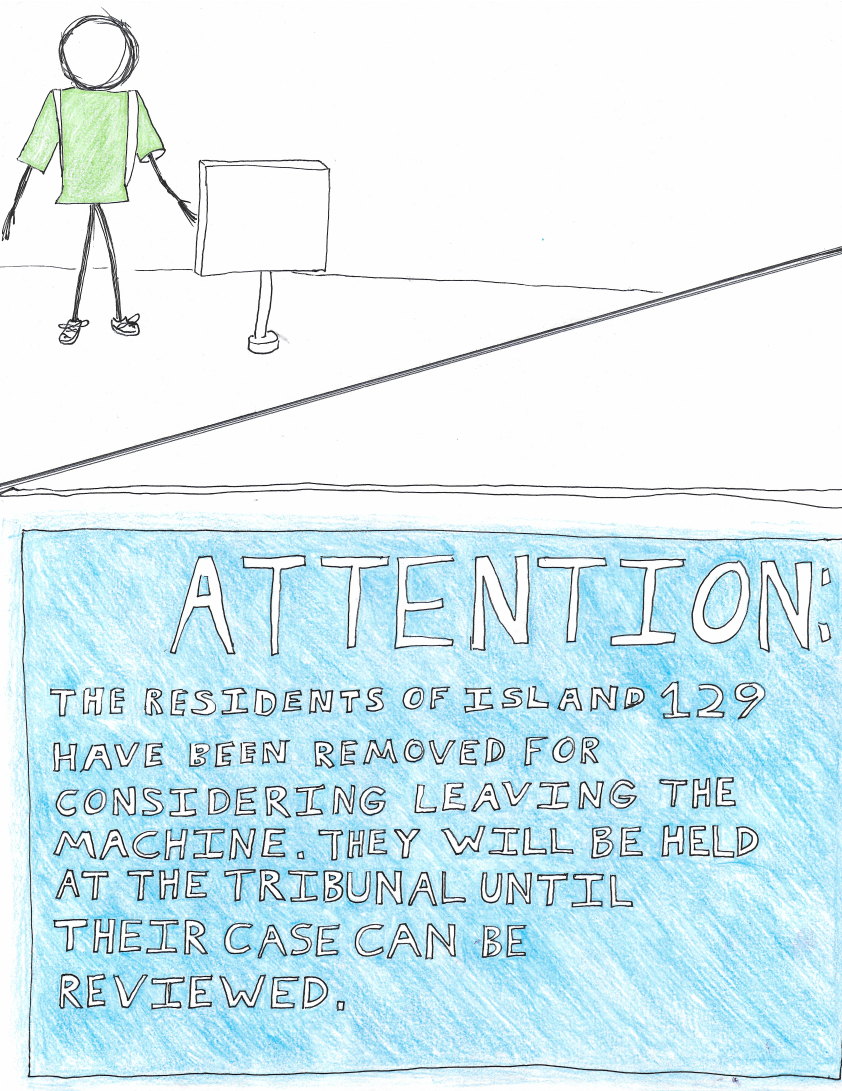 ATTENTION:
THE RESIDENTS OF ISLAND 129
HAVE BEEN REMOVED FOR
CONSIDERING LEAVING THE
MACHINE. THEY WILL BE HELD
AT THE TRIBUNAL UNTIL
THEIR CASE CAN BE
REVIEWED.